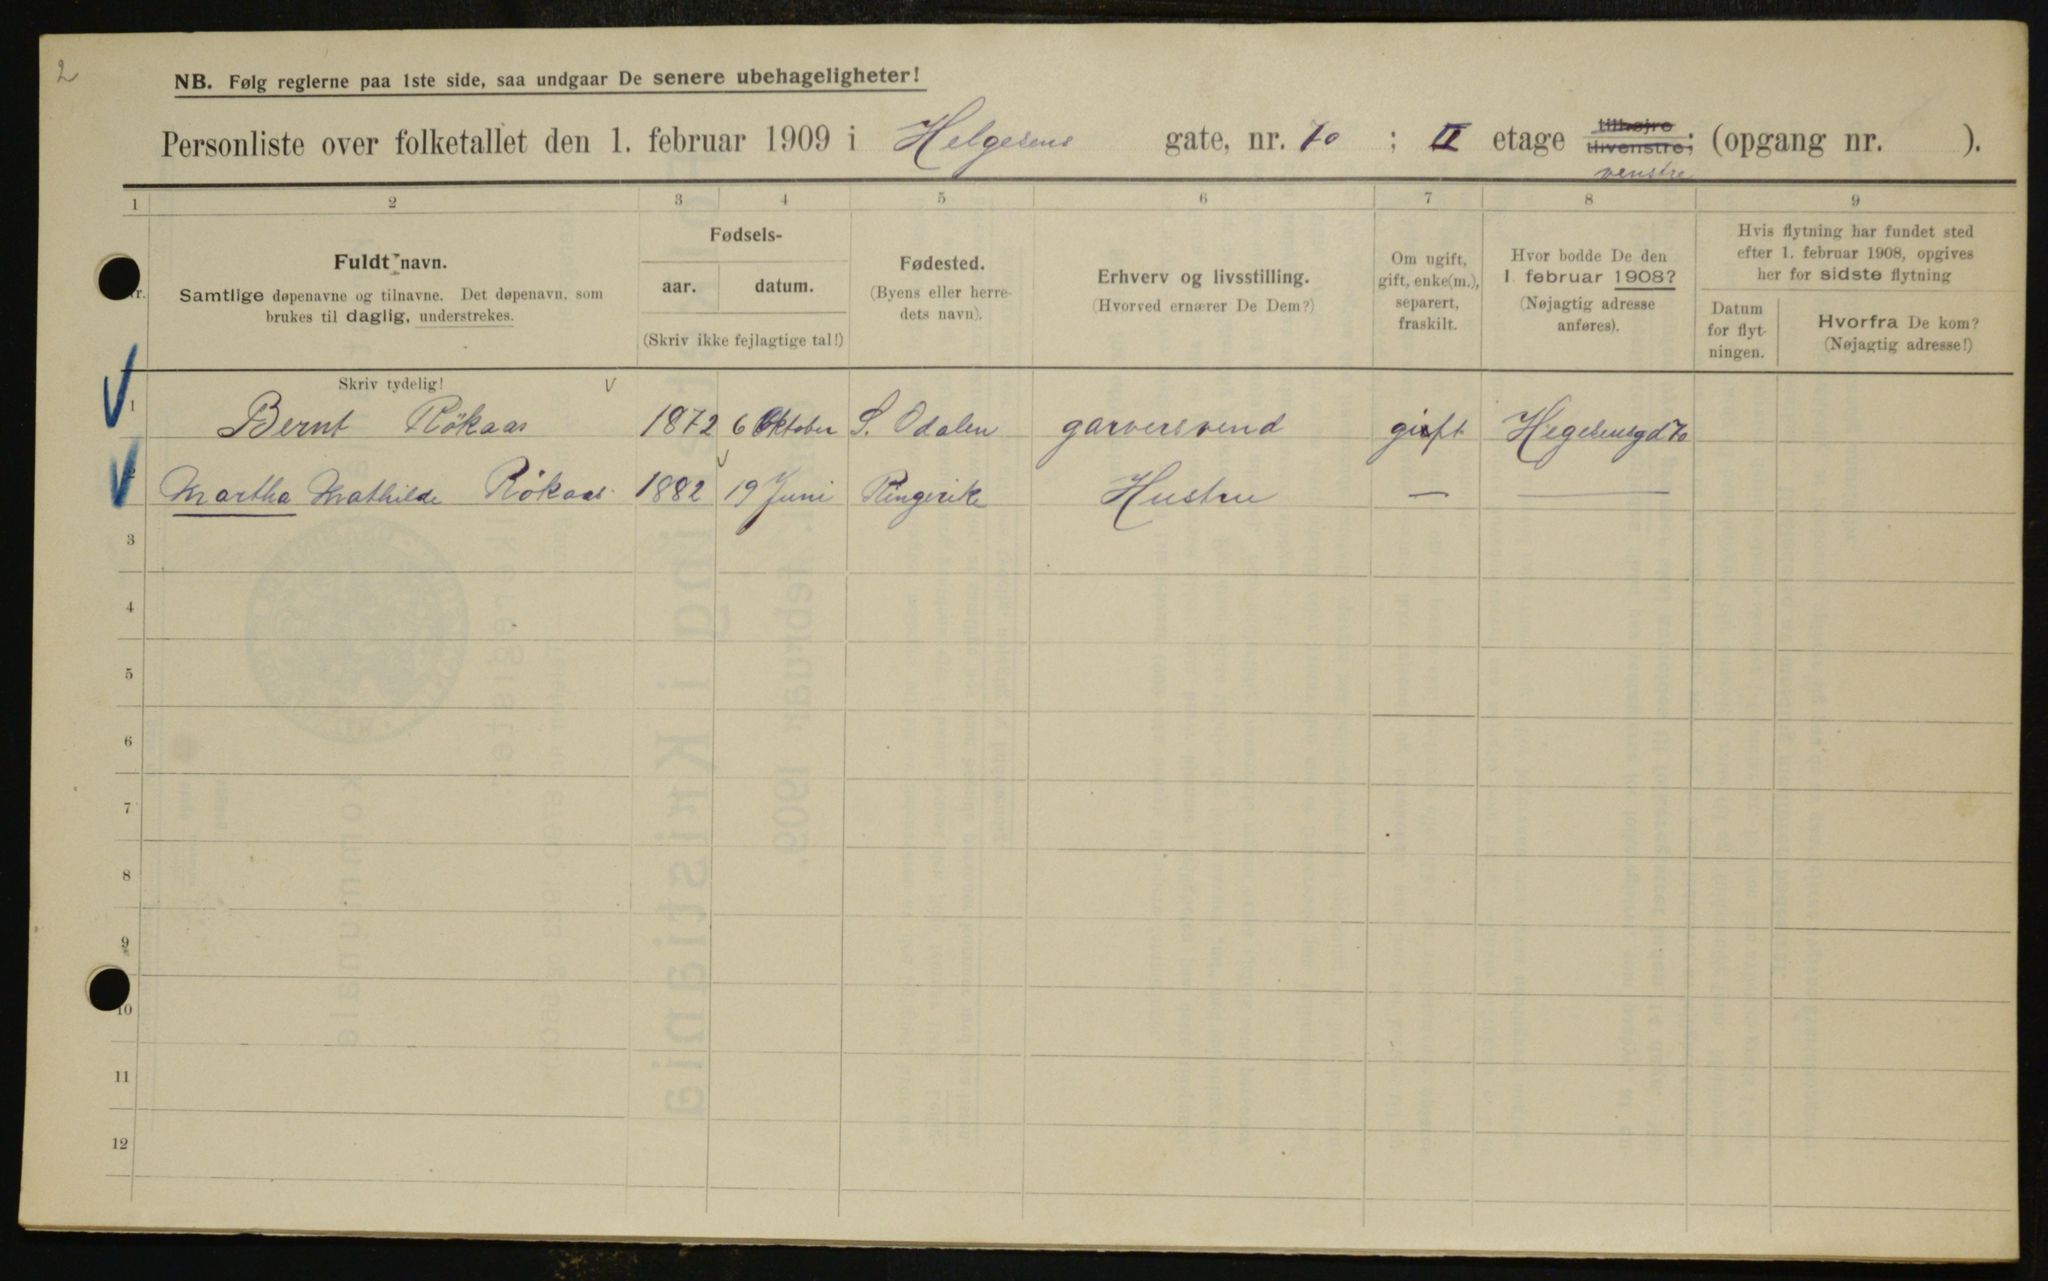 2
NB. Følg reglerne paa 1ste side, saa undgaar De senere ubehageligheter!
Personliste over folketallet den 1. februar 1909 i Helgesens gate, nr. 70 ; II etage tilhøjre tilvenstre; (opgang nr. ).
venstre
1 2 3 4 5 6 7 8 9
Fuldt navn.
Samtlige døpenavne og tilnavne. Det døpenavn, som
brukes til daglig, understrekes.
Fødsels-
aar. datum.
(Skriv ikke fejlagtige tal!)
Fødested.
(Byens eller herre-
dets navn).
Erhverv og livsstilling.
(Hvorved ernærer De Dem?)
Om ugift,
gift, enke(m.),
separert,
fraskilt.
Hvor bodde De den
1. februar 1908?
(Nøjagtig adresse
anføres).
Hvis flytning har fundet sted
efter 1. februar 1908, opgives
her for sidste flytning
Datum
for flyt-
ningen.
Hvorfra De kom?
(Nøjagtig adresse!)
Skriv tydelig!
1 Bernt Rökaas 1872 6 Oktober S. Odalen garversvend gift Hegesensgd 70
Martha Mathilde Rökaas 1882 19 Juni Ringerike Hustru — —
3
4
5
6
7
8
9
10
11
12